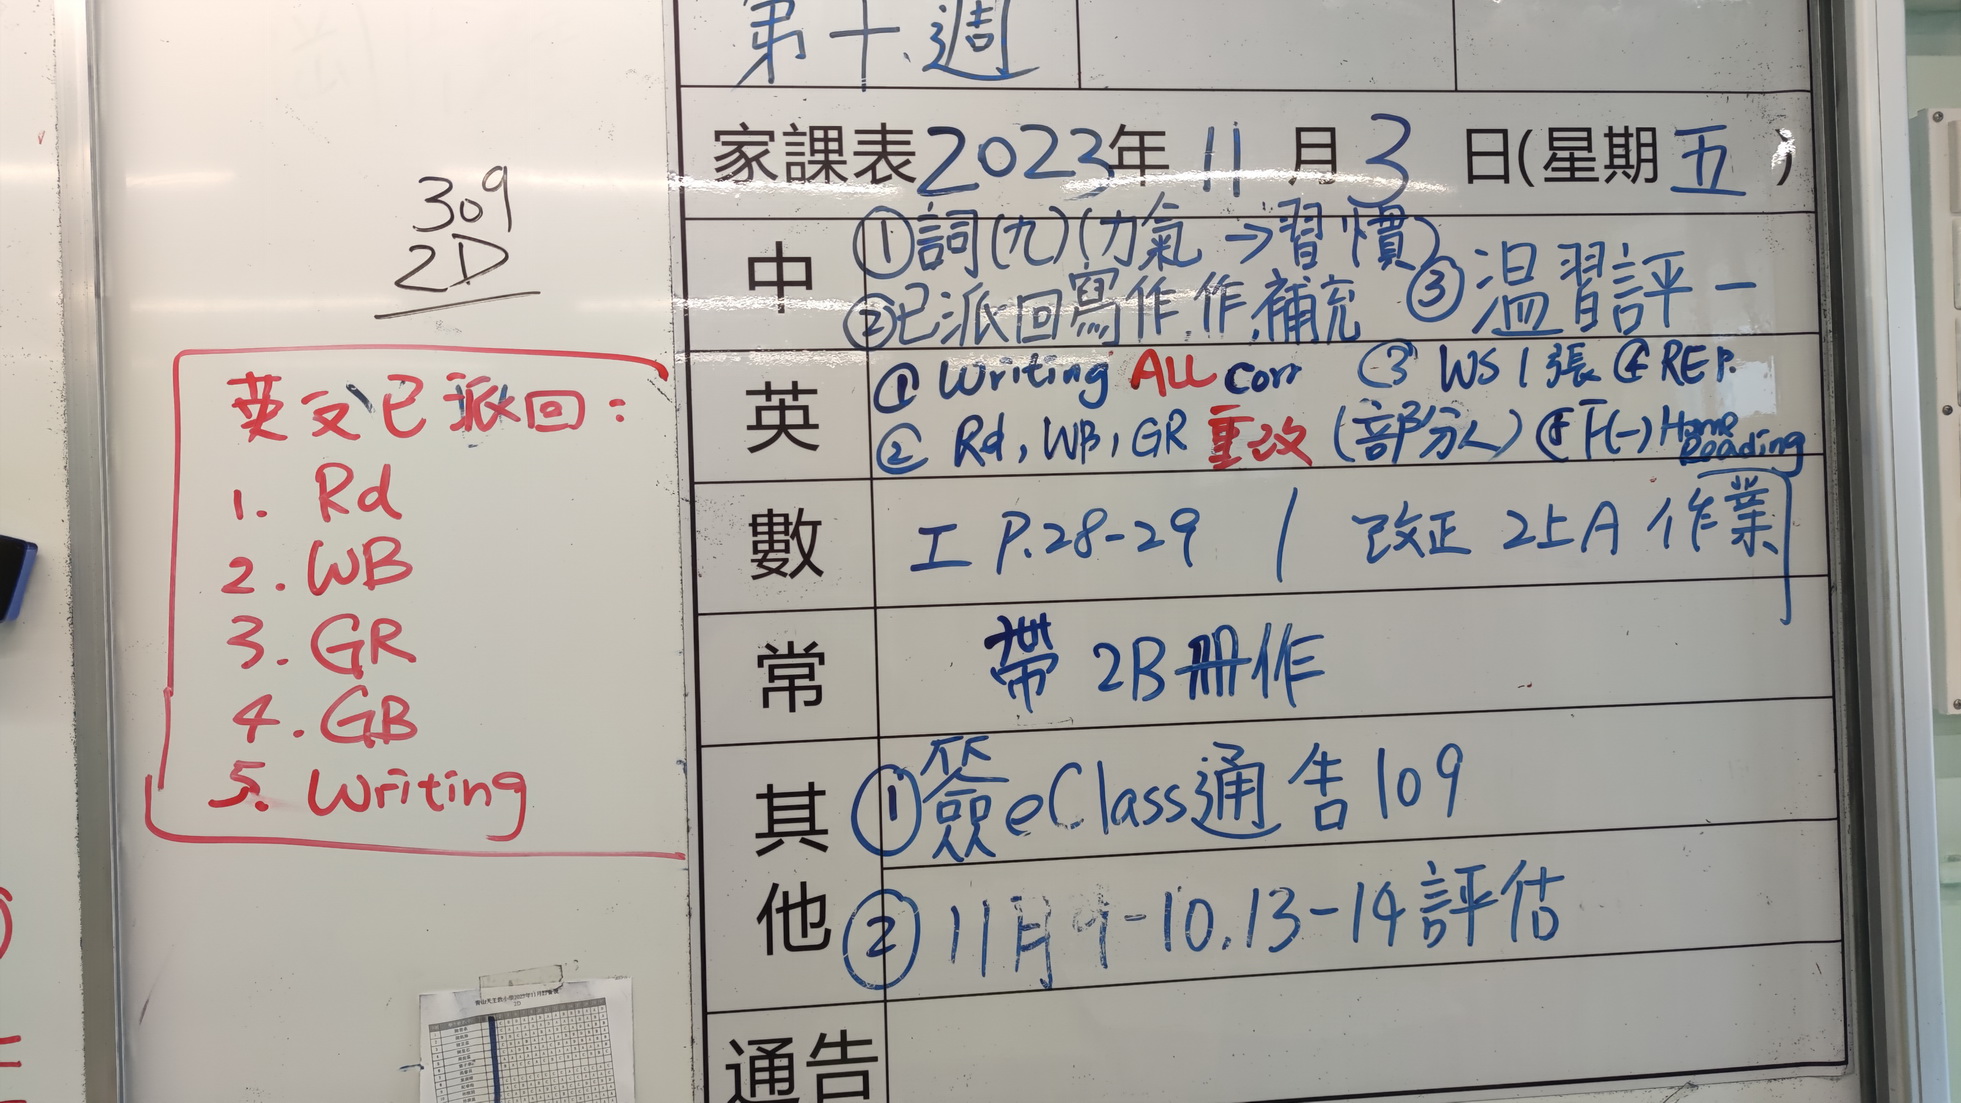 第十週
家課表2023年11月3日(星期五)
309
2D
中
①詞(九)(力氣→習慣)
②已派回寫作,作,補充 ③温習評一
英
① Writing ALL Corr ③ WS 1張 ④ REP.
② Rd, WB, GR 重改 (部分人) ⑤ F(一) Home Reading
數
工 P.28-29 / 改正 2上A 作業
常
帶 2B冊作
其他
①簽eClass通告109
②11月9-10.13-14評估
通告
英文已派回:
1. Rd
2. WB
3. GR
4. GB
5. Writing
2D